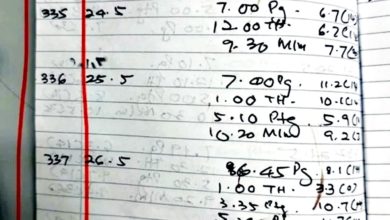 335 24.5 7.00 Pg 6.7(14
12.00 TH. 6.2(14
9.30 Mlw 7.7(
336 25.5 7.00Pg. 11.2(14
1.00 TH. 10.1(14
5.10 Ptg 5.9(1
10.20 Mlw 9.2(
337 26.5 6.45 Pg 8.1(14
1.00 TH. 3.3(0)
3.35 10.7(